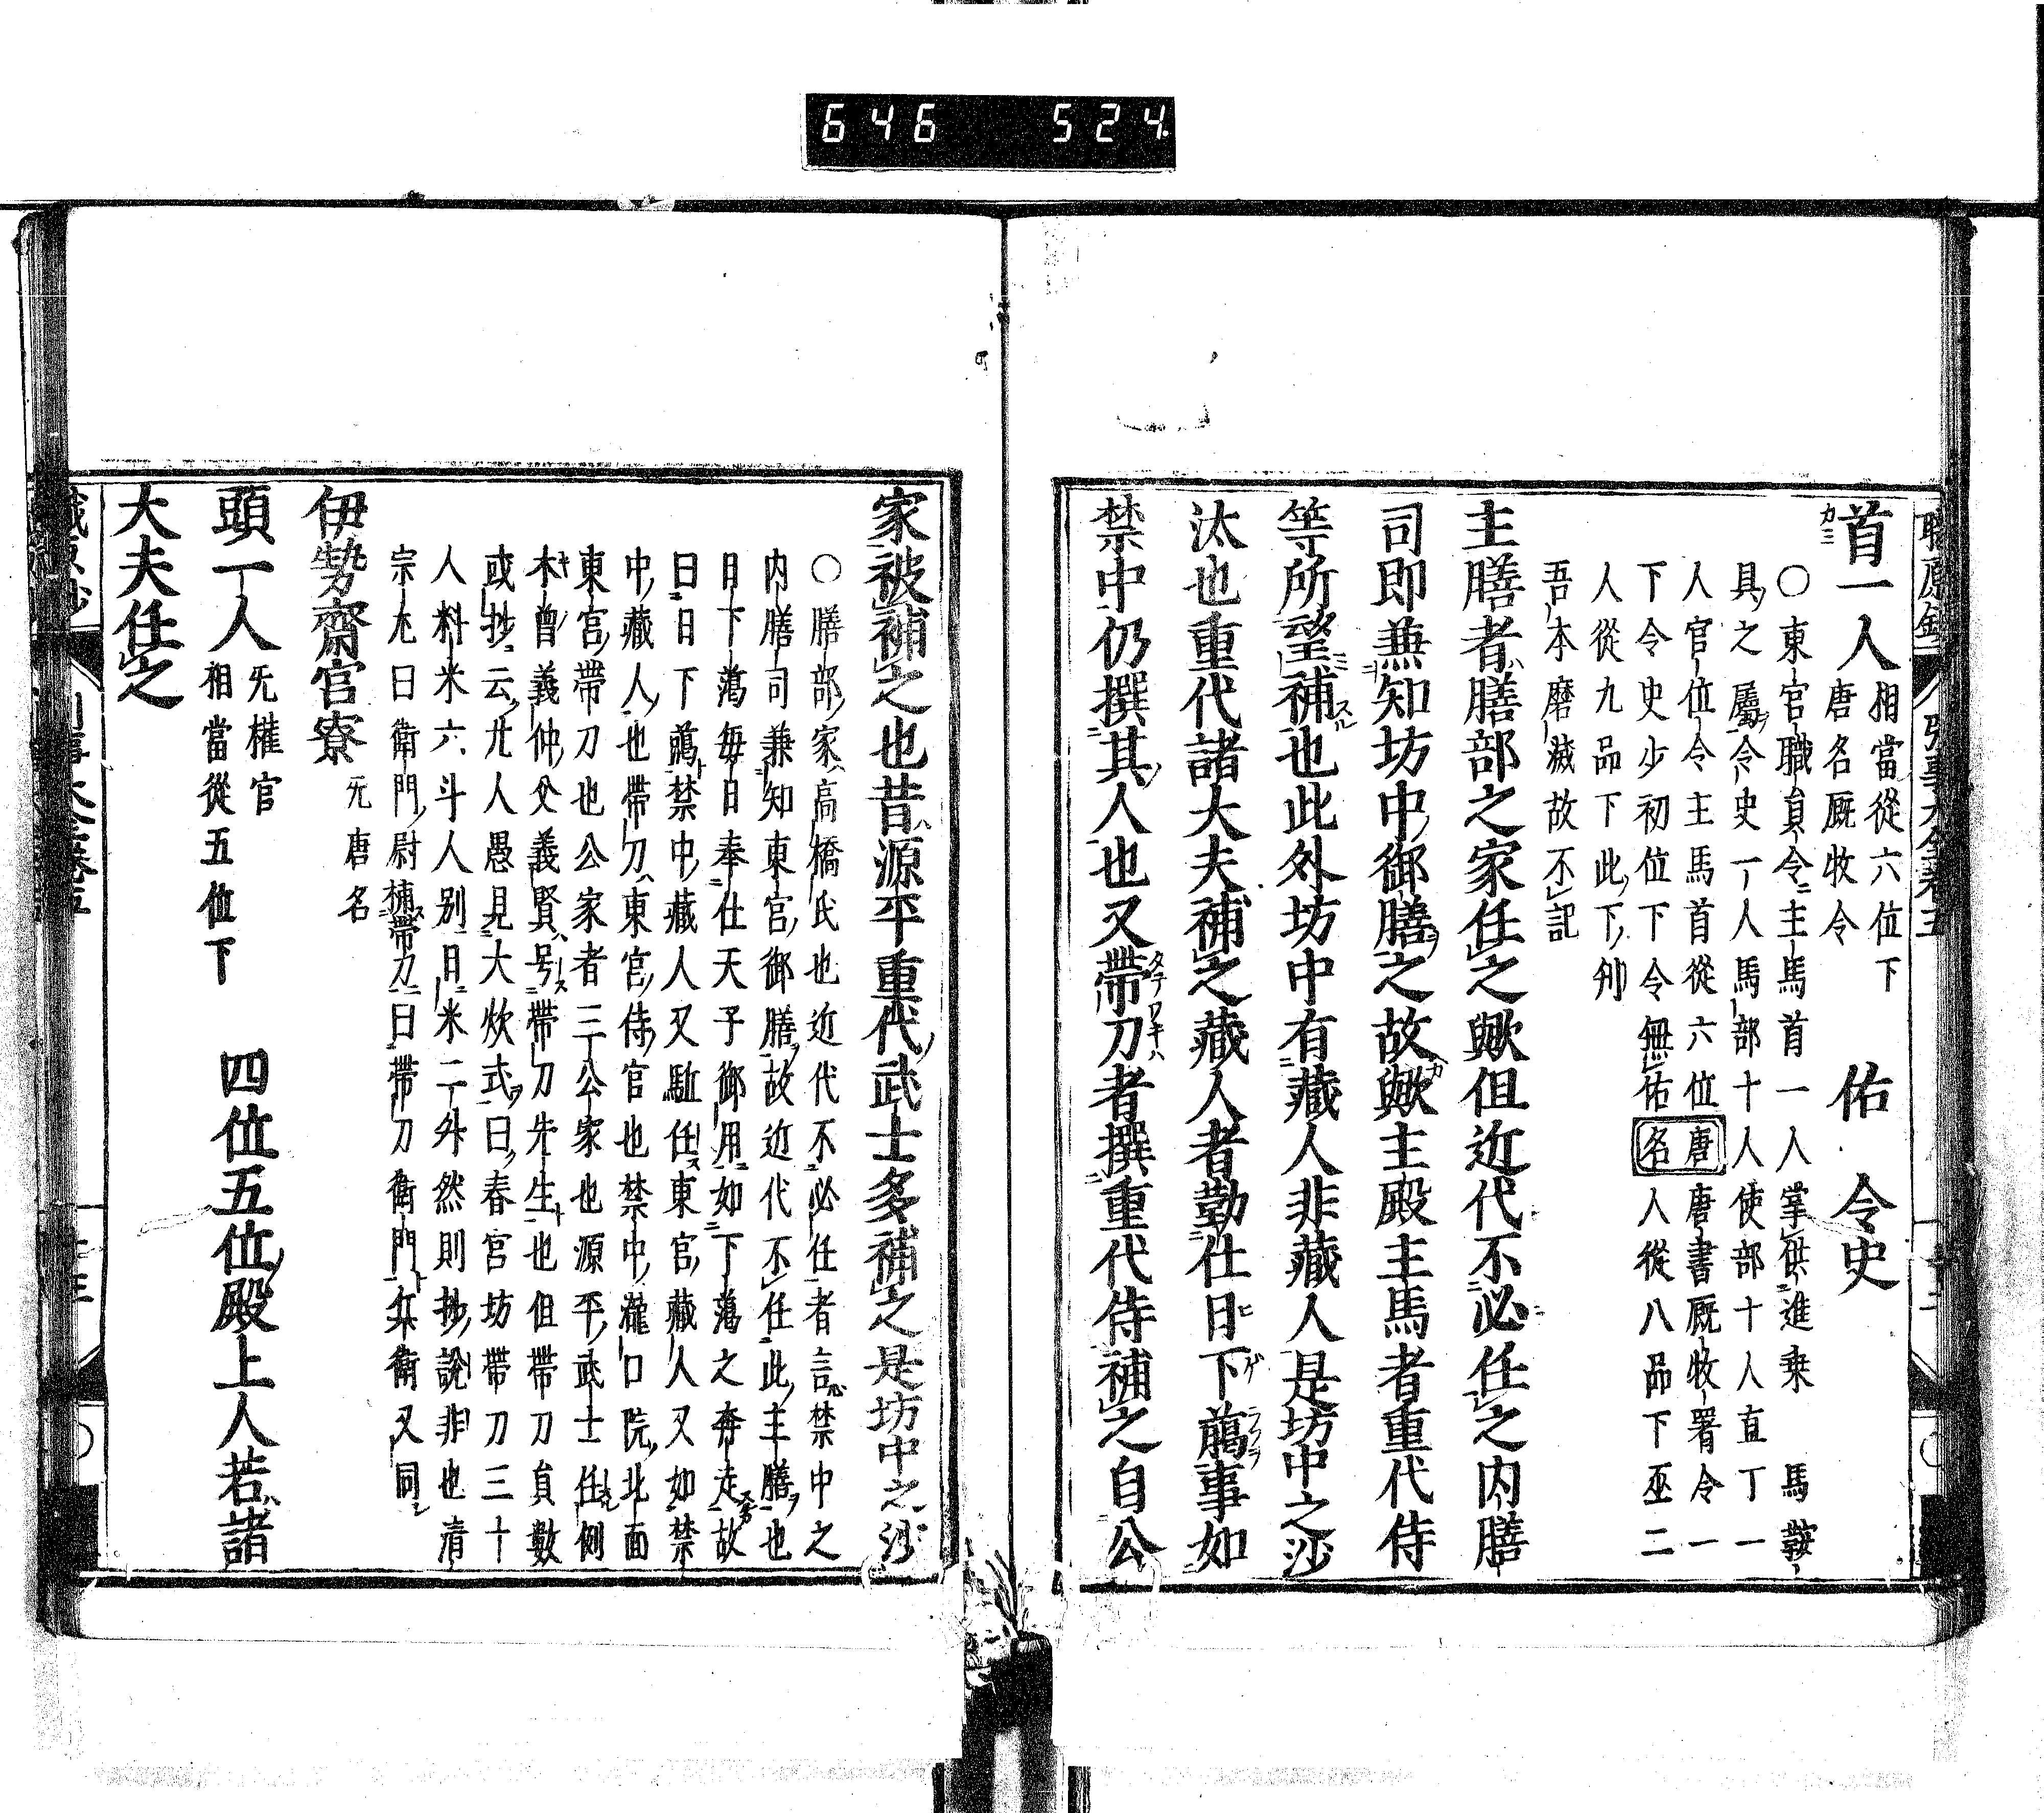 646 524
首一人 相當從六位下 佑 令史
唐名厩牧令
○東宮職員令主馬首一人掌供進乘 馬鞍
具之屬令史一人馬部十人使部十人直丁一
人官位令主馬首從六位唐名唐書厩牧署令一
下令史少初位下令無佑 人從八品下丞二
人從九品下此下列
吾本磨滅故不記
主膳者膳部之家任之歟但近代不必任之内膳
司即兼知坊中御膳之故歟主殿主馬者重代侍
等所望補也此外坊中有藏人非藏人是坊中之沙
汰也重代諸大夫補之藏人者勤仕日下﨟事如
禁中仍撰其人也又帶刀者撰重代侍補之自公
家被補之也昔源平重代武士多補之是坊中之沙
○膳部家高橋氏也近代不必任者言禁中之
内膳司兼知東宮御膳故近代不任此主膳也
日下﨟每日奉仕天子御用如下﨟之奔走故
曰日下﨟禁中藏人又駈任東宮藏人又如禁
中藏人也帶刀東宮侍官也禁中瀧口院北面
東宮帶刀也公家者三公家也源平武士任例
木曾義仲父義賢号帶刀先生也但帶刀員數
或抄云廿人愚見大炊式曰春宮坊帶刀三十
人料米六斗人別日米二升然則抄說非也清
宗尢曰衛門尉補帶刀曰帶刀衛門兵衛又同
伊勢齋官寮 旡唐名
頭一人 旡權官 四位五位殿上人若諸
相當從五位下
大夫任之